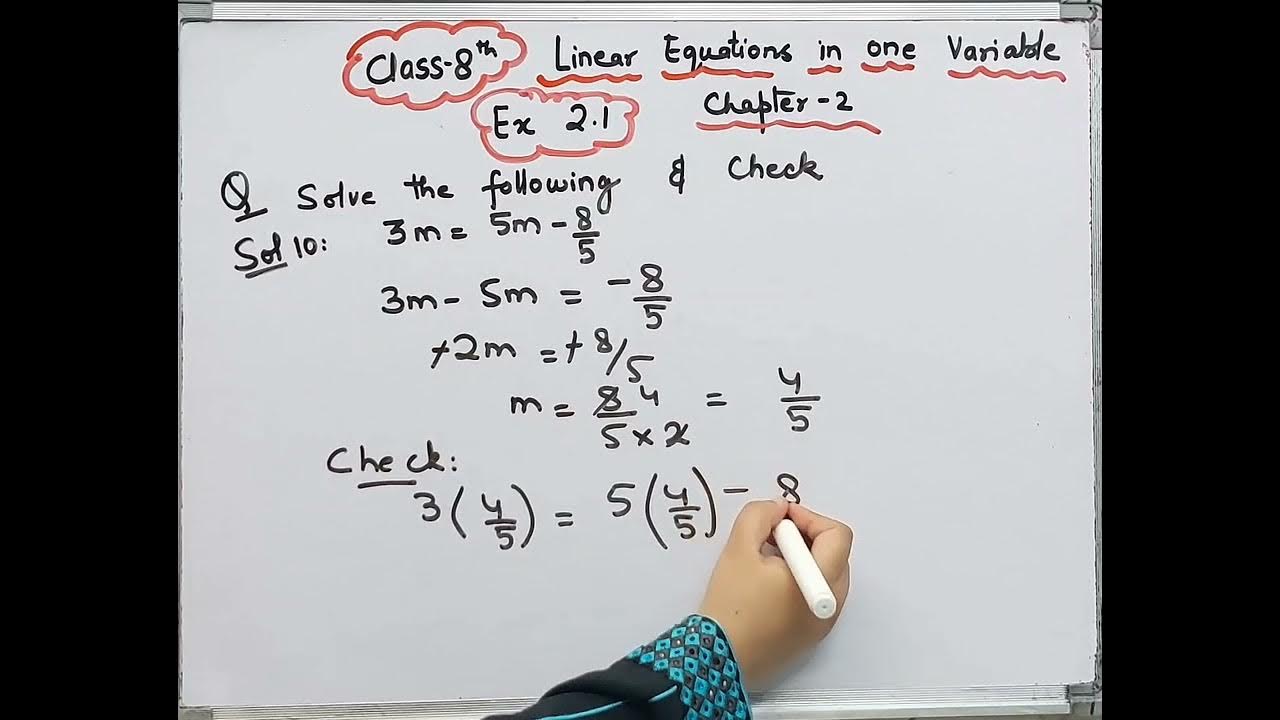 Class-8th Linear Equations in one Variable
Ex 2.1 Chapter-2
Q Solve the following & Check
Sol 10: 3m = 5m - 8/5
3m - 5m = -8/5
+2m = +8/5
m = 8 4 / 5 × 2 = 4/5
Check:
3(4/5) = 5(4/5) - 8